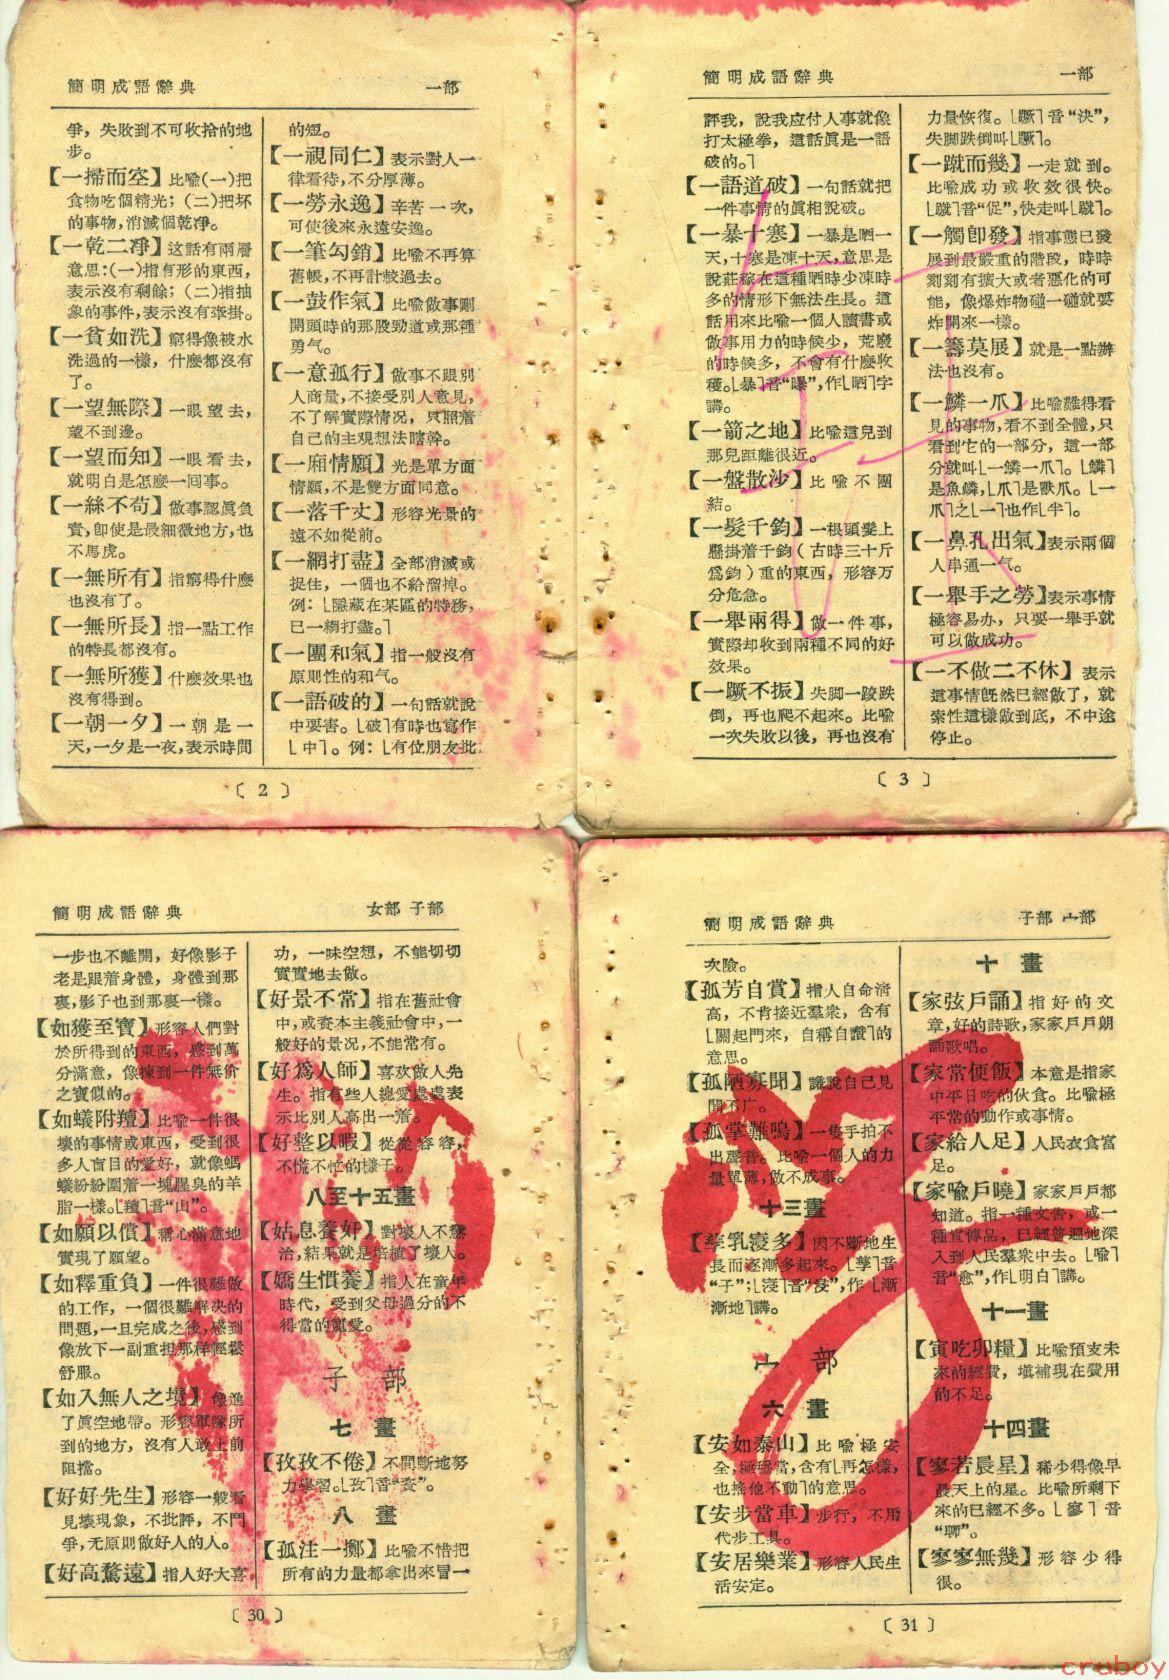 簡明成語辭典
一部
爭，失敗到不可收拾的地
步。
【一掃而空】比喩(一)把
食物吃個精光；(二)把坏
的事物,消滅個乾淨。
【一乾二凈】这話有兩層
意思:(一)指有形的東西，
表示沒有剩餘；(二)指抽
象的事件,表示沒有牽掛。
【一貧如洗】窮得像被水
洗過的一樣，什麼都沒有
了。
【一望無際】一眼望去，
望不到邊。
【一望而知】一眼看去，
就明白是怎麼一回事。
【一絲不苟】做事認眞負
責,卽使是最細微地方,也
不馬虎。
【一無所有】指窮得什麼
也沒有了。
【一無所長】指一點工作
的特長都沒有。
【一無所獲】什麼效果也
沒有得到。
【一朝一夕】一朝是一
天,一夕是一夜,表示時間
的短。
【一視同仁】表示對人一
律看待,不分厚薄。
【一勞永逸】辛苦一次，
可使後來永遠安逸。
【一筆勾銷】比喩不再算
舊帳，不再計較過去。
【一鼓作氣】比喩做事剛
開頭時的那股勁道或那種
勇气。
【一意孤行】做事不跟別
人商量,不接受別人意見，
不了解實際情況，只照着
自己的主观想法瞎幹。
【一廂情願】光是單方面
情願,不是雙方面同意。
【一落千丈】形容光景的
遠不如從前。
【一網打盡】全部消滅或
捉住，一個也不給溜掉。
例：⌊隱藏在某區的特務，
已一網打盡。⌉
【一團和氣】指一般沒有
原則性的和气。
【一語破的】一句話就說
中要害。⌊破⌉有時也寫作
⌊中⌉。例：⌊有位朋友批
〔2〕
簡明成語辭典
一部
評我，說我应付人事就像
打太極拳，這話眞是一語
破的。⌉
【一語道破】一句話就把
一件事情的眞相說破。
【一暴十寒】一暴是晒一
天,十寒是凍十天,意思是
說莊稼在這種晒時少凍時
多的情形下無法生長。這
話用來比喩一個人讀書或
做事用力的時候少，荒廢
的時候多，不會有什麼收
穫。⌊暴⌉音“曝”,作⌊晒⌉字
講。
【一箭之地】比喩這兒到
那兒距離很近。
【一盤散沙】比喩不團
結。
【一髮千鈞】一根頭髮上
懸掛着千鈞(古時三十斤
爲鈞)重的東西，形容万
分危急。
【一舉兩得】做一件事，
實際却收到兩種不同的好
效果。
【一蹶不振】失脚一跤跌
倒，再也爬不起來。比喩
一次失敗以後，再也沒有
力量恢復。⌊蹶⌉音“決”，
失脚跌倒叫⌊蹶⌉。
【一蹴而幾】一走就到。
比喩成功或收效很快。
⌊蹴⌉音“促”,快走叫⌊蹴⌉。
【一觸卽發】指事態已發
展到最嚴重的階段，時時
刻刻有擴大或者惡化的可
能，像爆炸物碰一碰就要
炸開來一樣。
【一籌莫展】就是一點辦
法也沒有。
【一鱗一爪】比喩難得看
見的事物,看不到全體,只
看到它的一部分，這一部
分就叫⌊一鱗一爪⌉。⌊鱗⌉
是魚鱗,⌊爪⌉是獸爪。⌊一
爪⌉之⌊一⌉也作⌊半⌉。
【一鼻孔出氣】表示兩個
人串通一气。
【一舉手之勞】表示事情
極容易办，只要一舉手就
可以做成功。
【一不做二不休】表示
這事情旣然已經做了，就
索性這樣做到底，不中途
停止。
〔3〕
簡明成語辭典
女部 子部
一步也不離開，好像影子
老是跟着身體，身體到那
裏,影子也到那裏一樣。
【如獲至寶】形容人們對
於所得到的東西，感到萬
分滿意，像揀到一件無价
之寶似的。
【如蟻附羶】比喩一件很
壞的事情或東西，受到很
多人盲目的愛好，就像螞
蟻紛紛圍着一塊腥臭的羊
脂一樣。⌊羶⌉音“山”。
【如願以償】稱心滿意地
實現了願望。
【如釋重負】一件很難做
的工作，一個很難解決的
問題,一旦完成之後,感到
像放下一副重担那样輕鬆
舒服。
【如入無人之境】像進
了眞空地帶。形容軍隊所
到的地方，沒有人敢上前
阻擋。
【好好先生】形容一般看
見壞現象，不批評，不鬥
爭,无原則做好人的人。
【好高騖遠】指人好大喜
功，一味空想，不能切切
實實地去做。
【好景不常】指在舊社會
中,或資本主義社會中,一
般好的景况,不能常有。
【好爲人師】喜欢做人先
生。指有些人總愛處處表
示比別人高出一着。
【好整以暇】從從容容，
不慌不忙的樣子。
八至十五畫
【姑息養奸】對壞人不懲
治,結果就是培植了壞人。
【嬌生慣養】指人在童年
時代，受到父母過分的不
得當的寵愛。
子部
七畫
【孜孜不倦】不間斷地努
力學習。⌊孜⌉音“玆”。
八畫
【孤注一擲】比喩不惜把
所有的力量都拿出來冒一
〔30〕
簡明成語辭典
子部 宀部
次險。
【孤芳自賞】指人自命清
高，不肯接近羣衆，含有
⌊關起門來，自稱自讚⌉的
意思。
【孤陋寡聞】謙說自己見
聞不广。
【孤掌難鳴】一隻手拍不
出聲音。比喩一個人的力
量單薄,做不成事。
十三畫
【孳乳寖多】因不斷地生
長而逐漸多起來。⌊孳⌉音
“子”;⌊寖⌉音“浸”,作⌊漸
漸地⌉講。
宀部
六畫
【安如泰山】比喩極安
全,極穩當,含有⌊再怎樣，
也搖他不動⌉的意思。
【安步當車】步行，不用
代步工具。
【安居樂業】形容人民生
活安定。
十畫
【家弦戶誦】指好的文
章,好的詩歌,家家戶戶朗
誦歌唱。
【家常便飯】本意是指家
中平日吃的伙食。比喩極
平常的動作或事情。
【家給人足】人民衣食富
足。
【家喩戶曉】家家戶戶都
知道。指一種文告，或一
種宣傳品，已經普遍地深
入到人民羣衆中去。⌊喩⌉
音“愈”,作⌊明白⌉講。
十一畫
【寅吃卯糧】比喩預支未
來的經費，塡補現在費用
的不足。
十四畫
【寥若晨星】稀少得像早
晨天上的星。比喩所剩下
來的已經不多。⌊寥⌉音
“聊”。
【寥寥無幾】形容少得
很。
〔31〕
cruboy